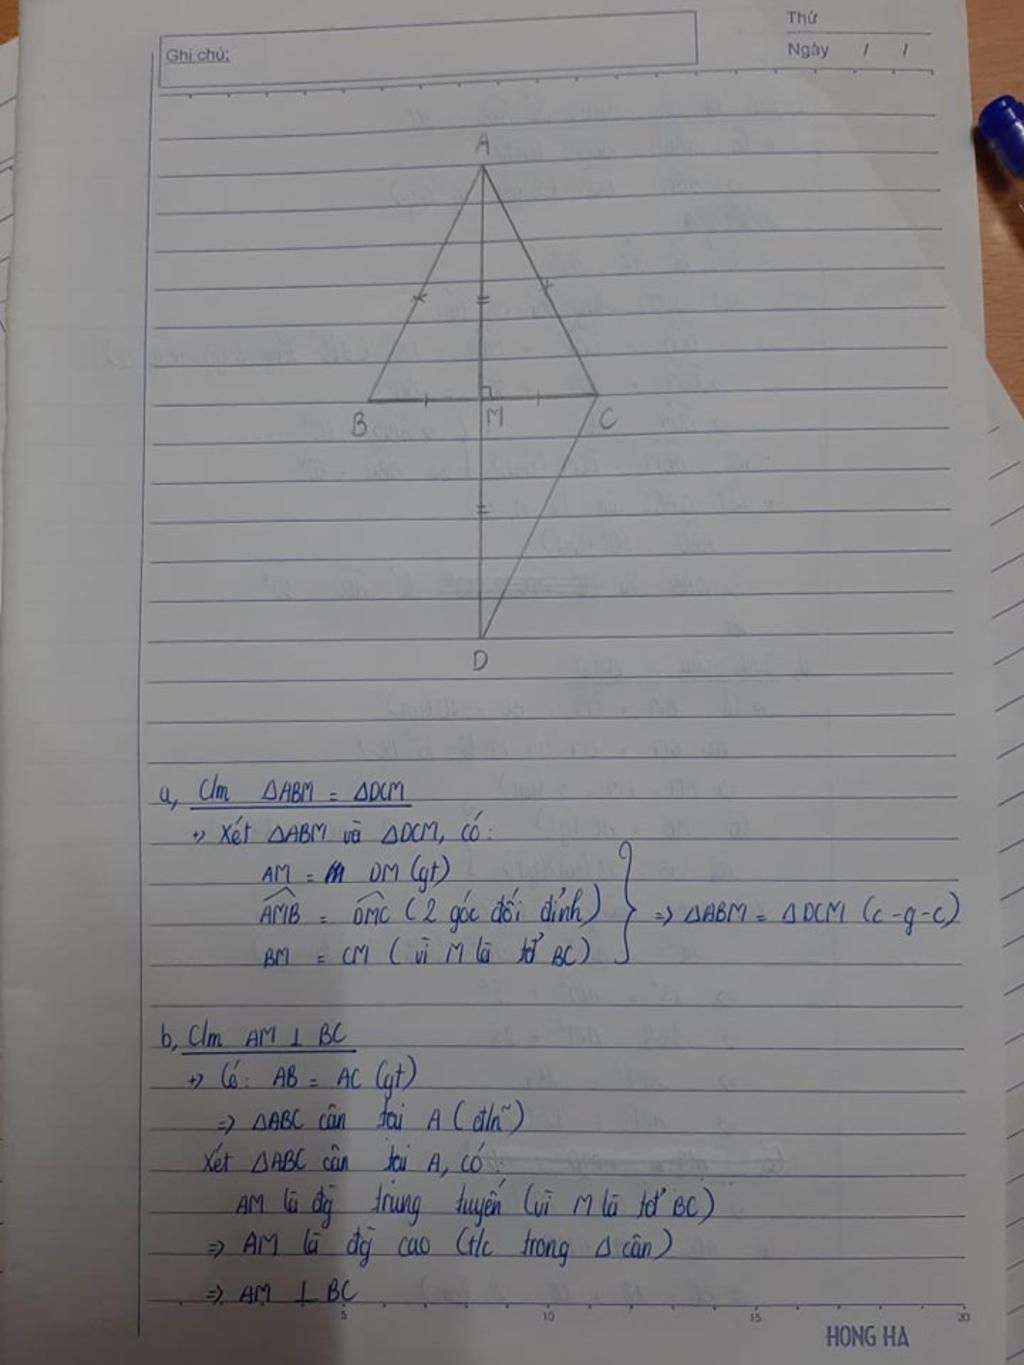 Thứ
Ghi chú:
Ngày / /
A
B
M
C
D
a, C/m ΔABM = ΔDCM
+, Xét ΔABM và ΔDCM, có:
AM = DM (gt)
AMB = DMC (2 góc đối đỉnh) } => ΔABM = ΔDCM (c-g-c)
BM = CM (vì M là tđ BC)
b, C/m AM ⊥ BC
+, Có: AB = AC (gt)
=> ΔABC cân tại A (đ/n~)
Xét ΔABC cân tại A, có:
AM là đg̀ trung tuyến (vì M là tđ BC)
=> AM là đg̀ cao (t/c trong Δ cân)
=> AM ⊥ BC
5 10 15 20
HONG HA